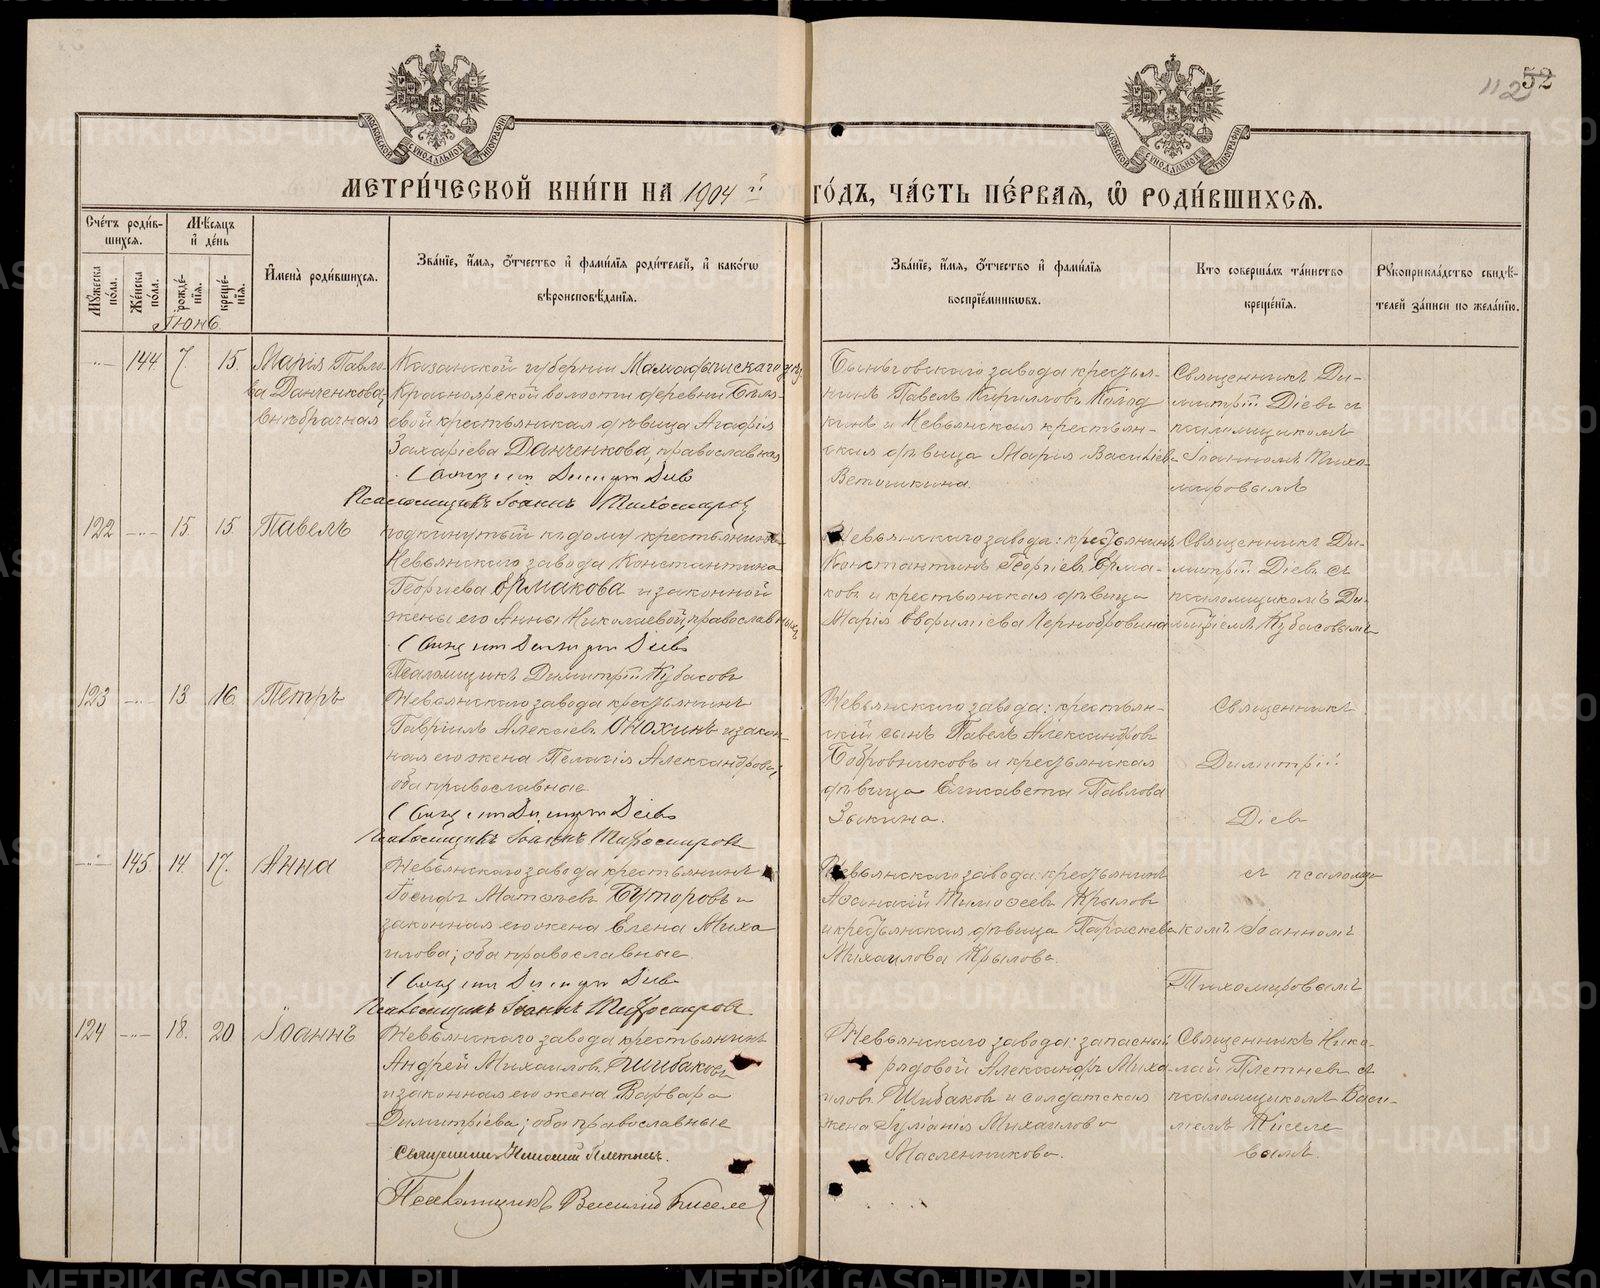 52
112
МОСКОВСКОЙ СѴНОДАЛЬНОЙ ТИПОГРАФІИ
МОСКОВСКОЙ СѴНОДАЛЬНОЙ ТИПОГРАФІИ
МЕТРИ́ЧЕСКОЙ КНИ́ГИ НА 1904й ГО́ДЪ, ЧА́СТЬ ПЕ́РВАЯ, Ѡ҆ РОДИ́ВШИХСЯ.
Сче́тъ роди́в-
шихся.
Мѣ́сяцъ
и҆ де́нь
Мꙋ́жеска по́ла.
Же́нска по́ла.
рожде́-
нїя.
креще́-
нїя.
И҆мена̀ роди́вшихся.
Зва́нїе, и҆́мя, ѻ҆́тчество и҆ фами́лїя роди́телей, и҆ како́гѡ
вѣроисповѣ́данїя.
Зва́нїе, и҆́мя, ѻ҆́тчество и҆ фами́лїя
воспрїе́мникѡвъ.
Кто соверша́лъ та́инство
креще́нїя.
Рꙋкоприкла́дство свидѣ́-
телей за́писи по жела́нїю.
Іюнь
144 7. 15. Марія Павло-
ва Данченкова,
внѣбрачная
Казанской губерніи Мамадышскаго уѣз.
Красноярской волости деревни
крестьянская дѣвица Агафія
Захаріева Данченкова, православная
Псаломщикъ Іоаннъ Тихомировъ
Быньговскаго завода крестья-
нинъ Павелъ Кирилловъ
и Невьянская крестьян-
ская дѣвица Марія Васильева
Ветошкина.
Священникъ Ди-
митрій Діевъ съ
псаломщикомъ
Іоанномъ Тихо-
мировымъ
122 15. 15. Павелъ
подкинутый къ дому крестьянина
Невьянскаго завода Константина
Георгіева Ермакова и законной
жены его Анны Николаевой, православныхъ
Псаломщикъ Димитрій Кубасовъ
Невьянскаго завода: крестьянинъ
Константинъ Георгіевъ Ерма-
ковъ и крестьянская дѣвица
Марія Евфиміева Чернобровина
Священникъ Ди-
митрій Діевъ съ
псаломщикомъ Ди-
митріемъ Кубасовымъ
123 13. 16. Петръ
Невьянскаго завода крестьянинъ
Гавріилъ Алексіевъ Онохинъ и закон-
ная его жена Пелагія Александрова,
оба православные
Псаломщикъ Іоаннъ Тихомировъ
Невьянскаго завода: крестьян-
скій сынъ Павелъ Александровъ
Бобровниковъ и крестьянская
дѣвица Елисавета Павлова
Зыкина.
Священникъ
Димитрій
Діевъ
145 14. 17. Анна
Невьянскаго завода крестьянинъ
Іосифъ Матѳѣевъ Буторовъ и
законная его жена Елена Миха
илова; оба православные
Псаломщикъ Іоаннъ Тихомировъ.
Невьянскаго завода: крестьянинъ
Аѳанасій Тимоѳеевъ Крыловъ
и крестьянская дѣвица Параскева
Михаилова Крылова.
съ псаломщи
комъ Іоанномъ
Тихомировымъ
124 18. 20 Іоаннъ
Невьянскаго завода крестьянинъ
Андрей Михаиловъ Шибаковъ
и законная его жена Варвара
Димитріева; оба православные
Священникъ Николай Плетневъ.
Псаломщикъ Василій Киселевъ
Невьянскаго завода: запасной
рядовой Александръ Миха-
иловъ Шибаковъ и солдатская
жена Іуліанія Михаилова
Масленникова.
Священникъ Нико-
лай Плетневъ съ
псаломщикомъ Васи-
ліемъ Киселе
вымъ.
METRIKI.GASO-URAL.RU